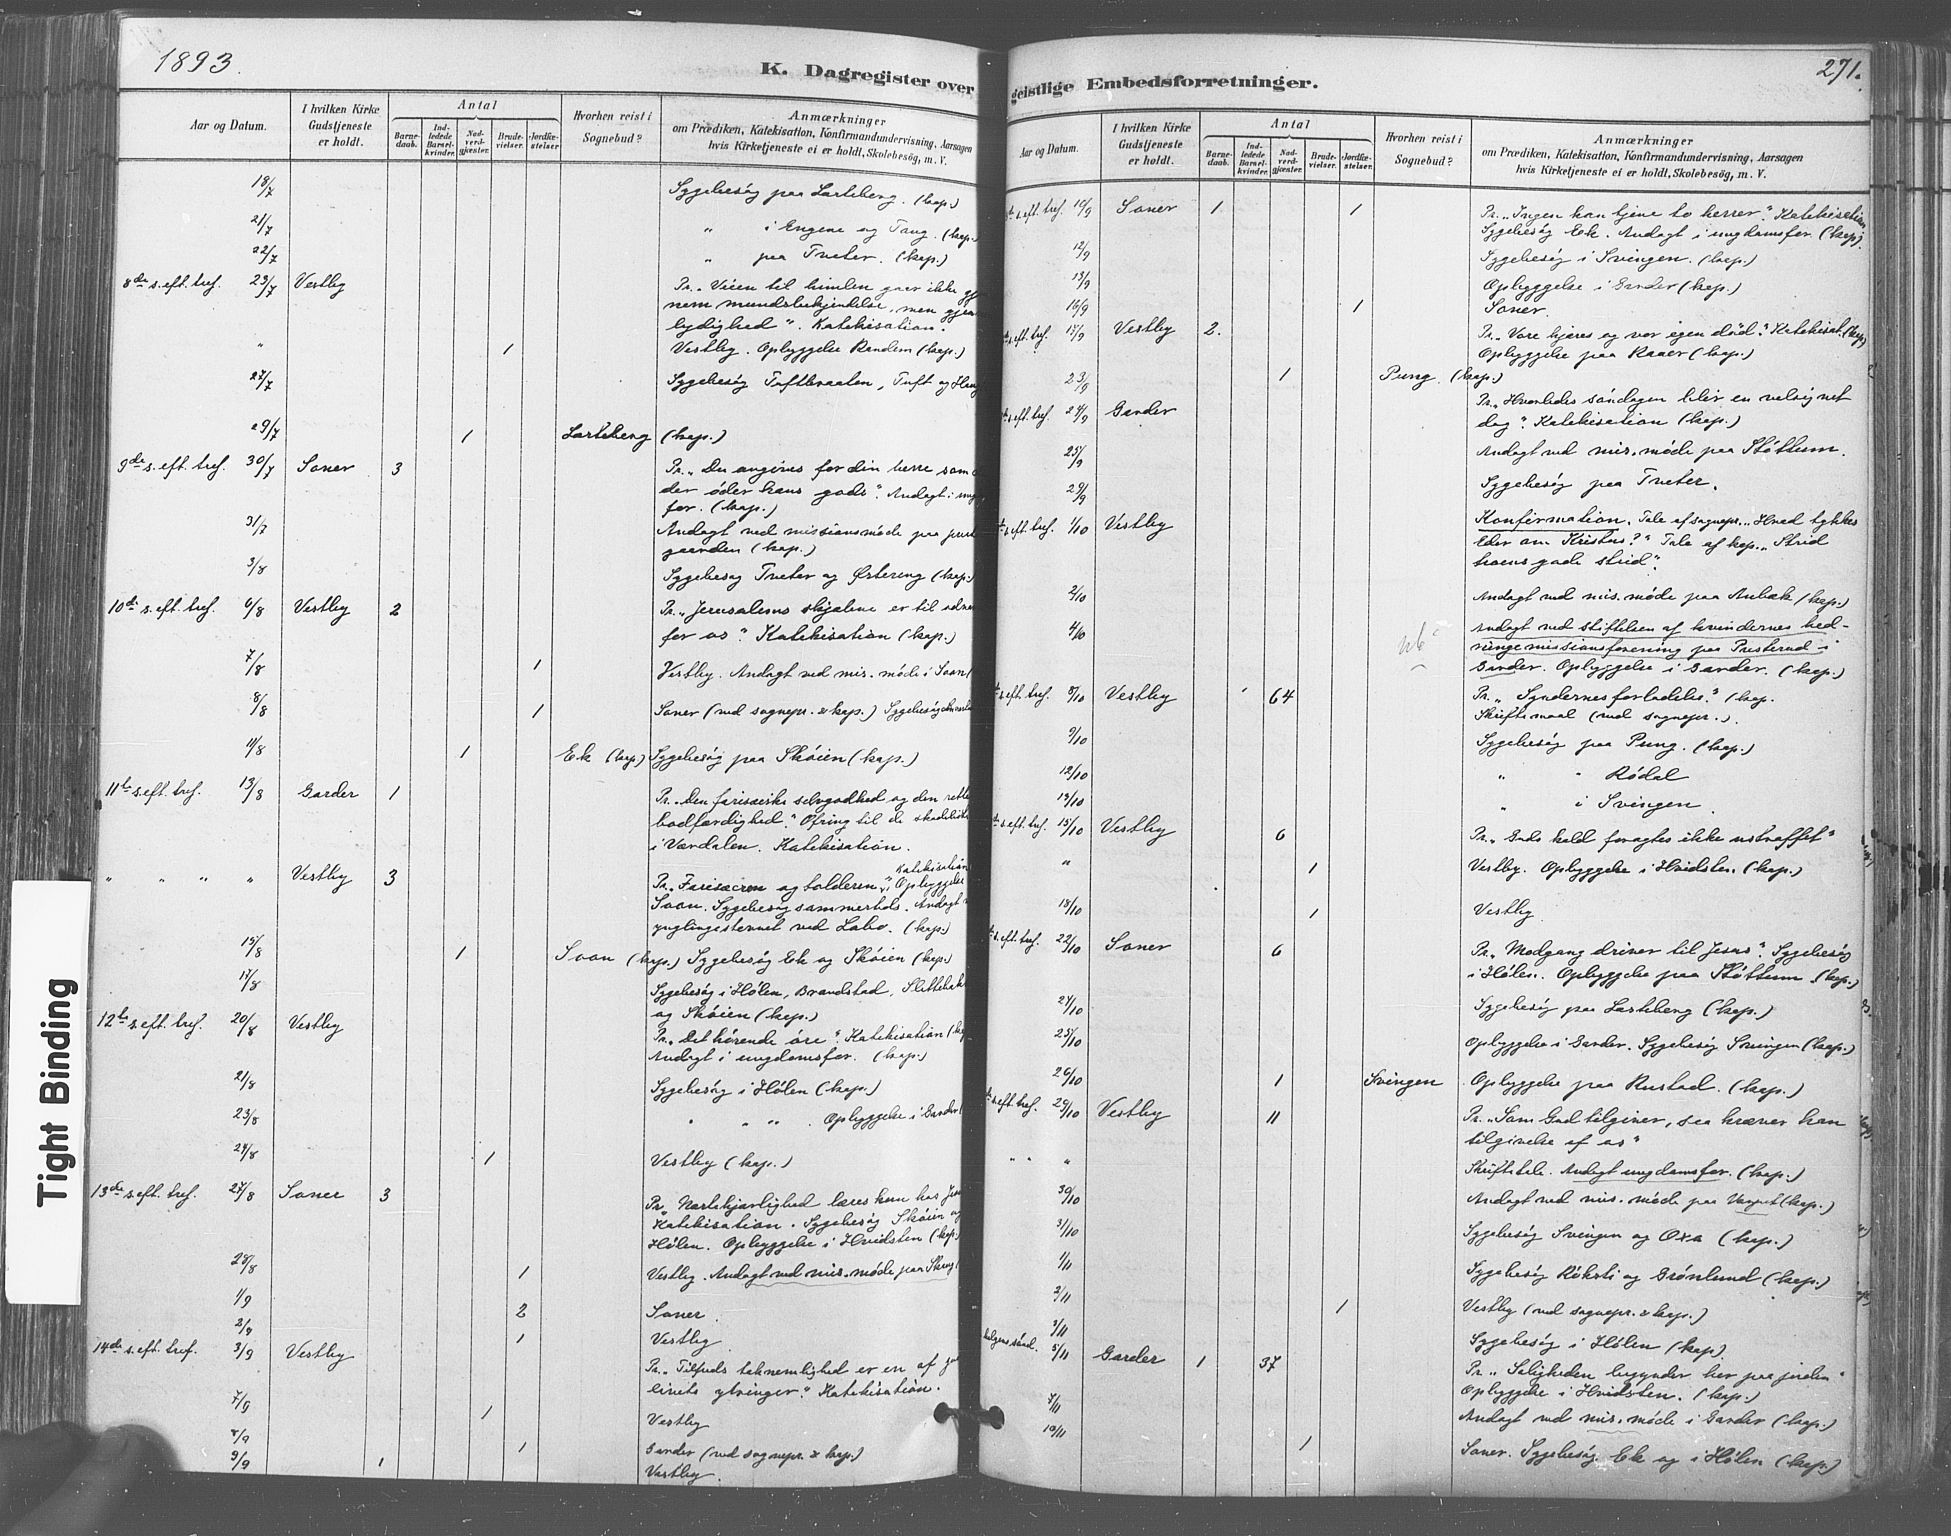 1893.
K. Dagregister over
Aar og Datum.
I hvilken Kirke Gudstjeneste er holdt.
Antal
Barne-daab.
Ind-ledede Barsel-kvinder.
Nad-verd-gjæster.
Brude-vielser.
Jordfæ-stelser
Hvorhen reist i Sognebud?
Anmærkninger
om Prædiken, Katekisation, Konfirmandundervisning, Aarsagen
hvis Kirketjeneste ei er holdt, Skolebesøg, m. V.
18/7 Sygebesøg paa Larsbeng. (kap.)
21/7 " i Engene og Tang. (kap.
22/7 " paa Tveter. (kap.)
8de s. eft. tref. 23/7 Vestby Pr. „Veien til himlen gaar ikke
nem mundsbekjendelse, men gjen
lydighed". Katekisation.
" 1 Vestby. Opbyggelse Randem (kap.)
27/7 Sygebesøg Tuftbraaten, Tuft og Haug
29/7 1 Larsbeng (kap.)
9de s. eft. tref. 30/7 Soner 3 Pr. „Du angives for din herre som
der øder hans gods". Andagt i ung
for. (kap.)
31/7 Andagt ved missionsmøde paa prest
gaarden (kap.)
3/8 Sygebesøg Tveter og Østereng (kap.)
10de s. eft. tref. 6/8 Vestby 2 Pr. „Jerusalems skjæbne er til advar
for os". Katekisation (kap.)
7/8 1 Vestby. Andagt ved mis. møde i Soon (
8/8 1 Soner (ved sognepr. & kap.) Sygebesøg
11/8 1 Ek (kap.) Sygebesøg paa Skøien (kap.)
11te s. eft. tref. 13/8 Garder 1 Pr. „Den farisæiske selvgodhed og den rette
bodfærdighed." Ofring til de skadelidte
i Værdalen. Katekisation.
" " " " Vestby 3 Katekisation
Pr. „Farisæeren og tolderen", Opbyggelse
Soon. Sygebesøg sammesteds. Andagt
ynglingestevnet ved Labo. (kap.)
15/8 1 Soon (kap.) Sygebesøg Ek og Skøien (kap.)
17/8 Sygebesøg i Hølen, Brandstad, Slettebak
og Skøien (kap.)
12te s. eft. tref. 20/8 Vestby Pr. „Det hørende øre". Katekisation (kap
Andagt i ungdomsfor. (kap.)
21/8 Sygebesøg i Hølen (kap.)
23/8 " " " . Opbyggelse i Garder (
24/8 1 Vestby (kap.)
13de s. eft. tref. 27/8 Soner 3 Pr. „Næstekjærlighed læres kun hos Jesu
Katekisation. Sygebesøg Skøien og
Hølen. Opbyggelse i Hvidsten (kap.)
28/8 1 Vestby. Andagt ved mis. møde paa
1/9 2 Soner.
2/9 1 Vestby
14de s. eft. tref. 3/9 Vestby Pr. „Tilfreds taknemlighed er en af
livets ytringer." Katekisation.
7/9 1 Vestby
8/9 1 Garder (ved sognepr. & kap.)
9/9 1 Vestby.
geistlige Embedsforretninger.
271.
Aar og Datum.
I hvilken Kirke Gudstjeneste er holdt.
Antal
Barne-daab.
Ind-ledede Barsel-kvinder.
Nad-verd-gjæster.
Brude-vielser.
Jordfæ-stelser
Hvorhen reist i Sognebud?
Anmærkninger
om Prædiken, Katekisation, Konfirmandundervisning, Aarsagen
hvis Kirketjeneste ei er holdt, Skolebesøg, m. V.
s. eft. tref. 10/9 Soner 1 1 Pr. „Ingen kan tjene to herrer". Katekisation
Sygebesøg Ek. Andagt i ungdomsfor. (kap.)
12/9 Sygebesøg i Svingen. (kap.)
13/9 Opbyggelse i Garder (kap.)
16/9 1 Soner.
s. eft. tref. 17/9 Vestby 2. Pr. „Vore kjæres og vor egen død". Katekisat. (kap)
Opbyggelse paa Raaer (kap.)
23/9 1 Pung. (kap.)
s. eft. tref. 24/9 Garder Pr. „Hvorledes søndagen bliver en velsignet
dag". Katekisation (kap.)
25/9 Andagt ved mis. møde paa Støttum.
29/9 Sygebesøg paa Tveter.
s. eft. tref. 1/10 Vestby Konfirmation. Tale af sognepr. „Hvad tykkes
Eder om Kristus?" Tale af kap. „Strid
troens gode strid".
2/10 Andagt ved mis. møde paa Aulæk (kap.)
4/10 Andagt ved stiftelsen af kvindernes hed-
ningemissionsforening paa Presterud i
Garder. Opbyggelse i Garder. (kap.)
s. eft. tref. 8/10 Vestby 64 Pr. „Syndernes forladelse." (kap.
Skriftemaal (ved sognepr.).
9/10 Sygebesøg paa Pung. (kap.)
12/10 " " Rødal
14/10 " i Svingen
s. eft. tref. 15/10 Vestby 6 Pr. „Guds kald foragtes ikke ustraffet"
" 1 Vestby. Opbyggelse i Hvidsten. (kap.)
18/10 1 Vestby
s. eft. tref. 22/10 Soner 6 Pr. „Modgang driver til Jesus". Sygebesøg
i Hølen. Opbyggelse paa Støttum. (kap.)
24/10 Sygebesøg paa Larsbeng (kap.)
25/10 Opbyggelse i Garder. Sygebesøg Svingen (kap.)
26/10 1 Svingen Opbyggelse paa Rustad. (kap.)
s. eft. tref. 29/10 Vestby 11 Pr. „Som Gud tilgiver, saa kræver han
tilgivelse af os"
" " " Skriftetale. Andagt ungdomsfor. (kap.)
30/10 Andagt ved mis. møde paa (kap.)
31/10 Sygebesøg Svingen og Oxa (kap.)
1/11 Sygebesøg Røksti og Grønlund (kap.)
2/11 1 Vestby (ved sognepr. & kap.)
3/11 Sygebesøg i Hølen (kap.)
helgens sønd. 5/11 Garder 1 37 Pr. „Saligheden begynder her paa jorden"
Opbyggelse i Hvidsten. (kap.)
7/11 Andagt ved mis. møde i Garder (kap.)
10/11 1 Soner. Sygebesøg Ek og i Hølen (kap.)
Tight Binding